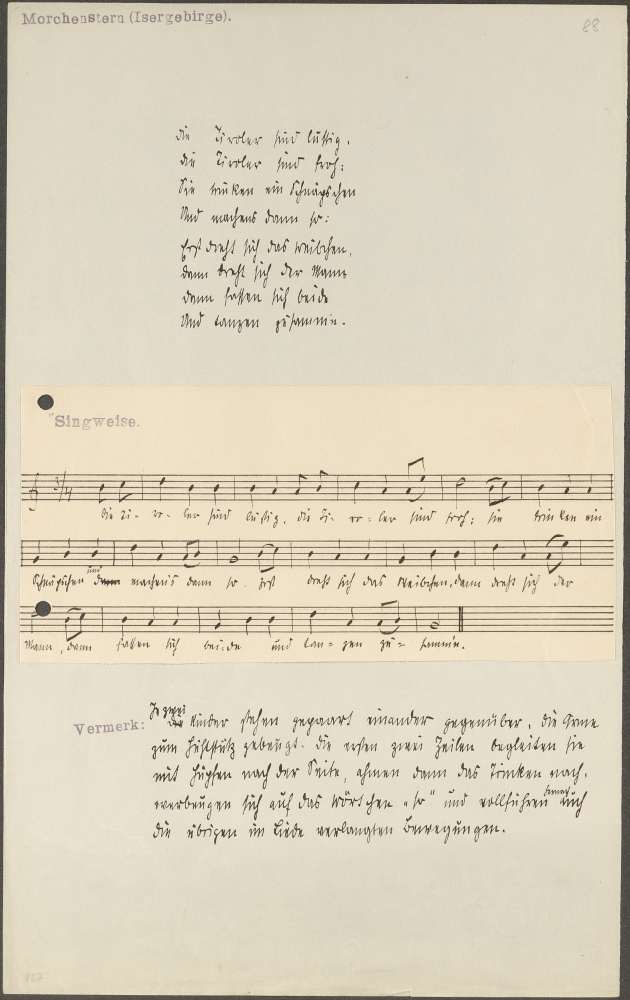 Morchenstern (Isergebirge).
88
Die Tiroler sind lustig,
die Tiroler sind froh;
Sie trinken ein Schnäpschen
Und machens dann so:
Erst dreht sich das Weibchen,
dann dreht sich der Mann
dann fassen sich beide
Und tanzen zusamm'n.
Singweise.
3/4
Die Ti- ro- ler sind lustig, die Ti- ro- ler sind froh; sie trinken ein
Schnäpschen und machen's dann so. Erst dreht sich das Weibchen, dann dreht sich der
Mann, dann fassen sich bei-de und tan- zen zu- samm'n.
Vermerk: Je zwei Kinder stehen gepaart einander gegenüber, die Arme
zum Hüftstütz gebeugt. Die ersten zwei Zeilen begleiten sie
mit Hüpfen nach der Seite, ahmen dann das Trinken nach,
verbeugen sich auf das Wörtchen „so" und vollführen auch
die übrigen im Liede verlangten Bewegungen.